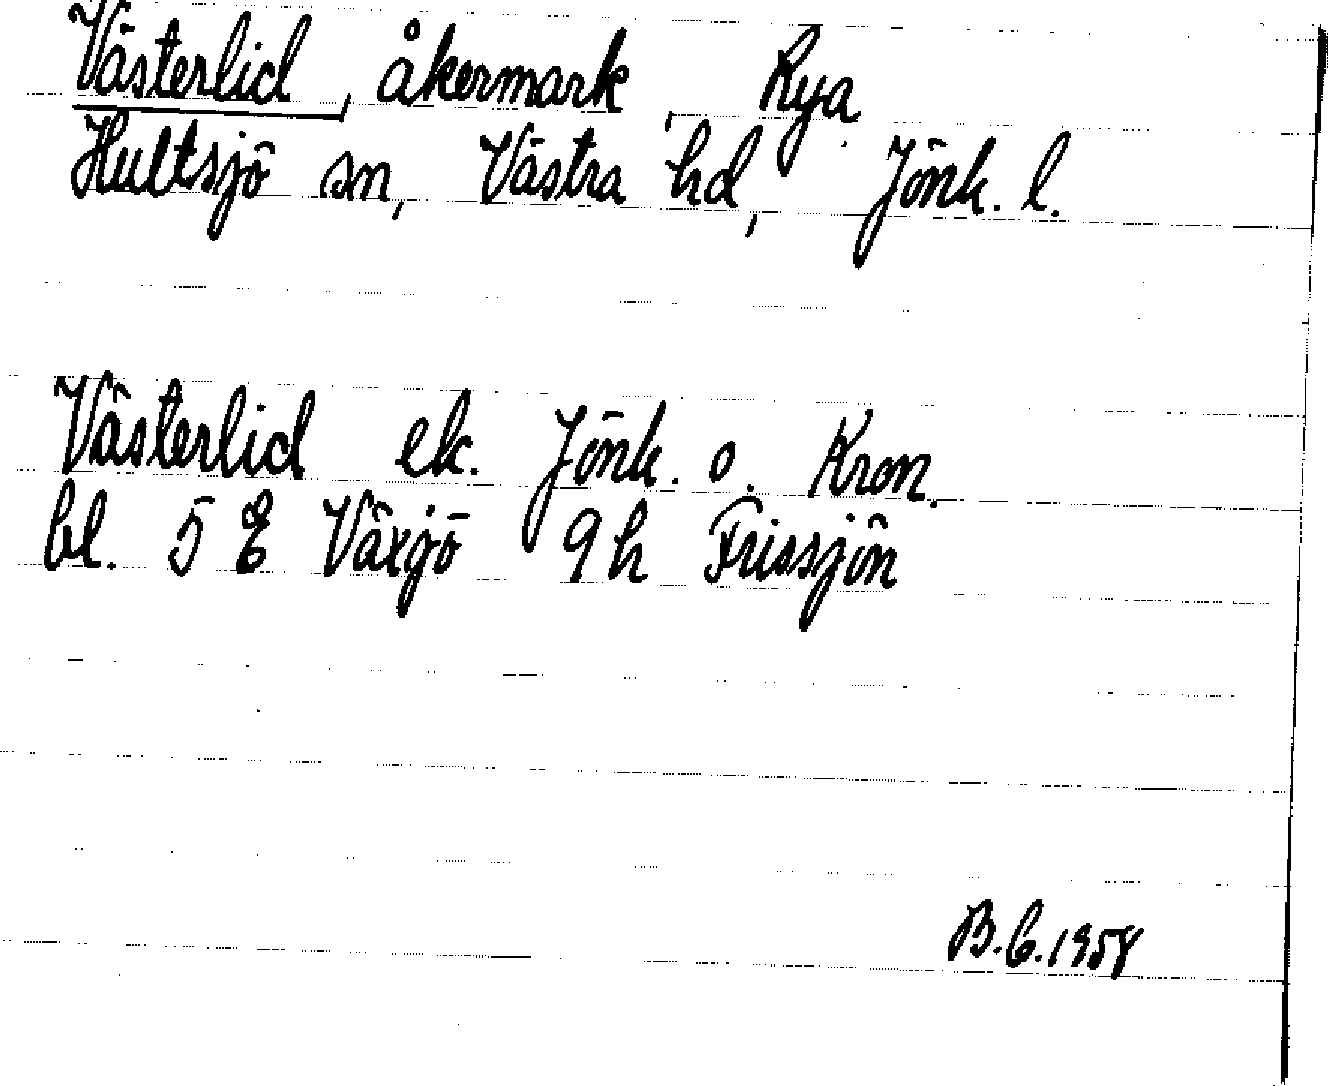 Västerlid, åkermark, Rya.
Hultsjö sn, Västra hd, Jönk. l.
Västerlid ek. Jönk. o. Kron.
bl. 5 E Växjö 9h Frissjön
B.G.1958